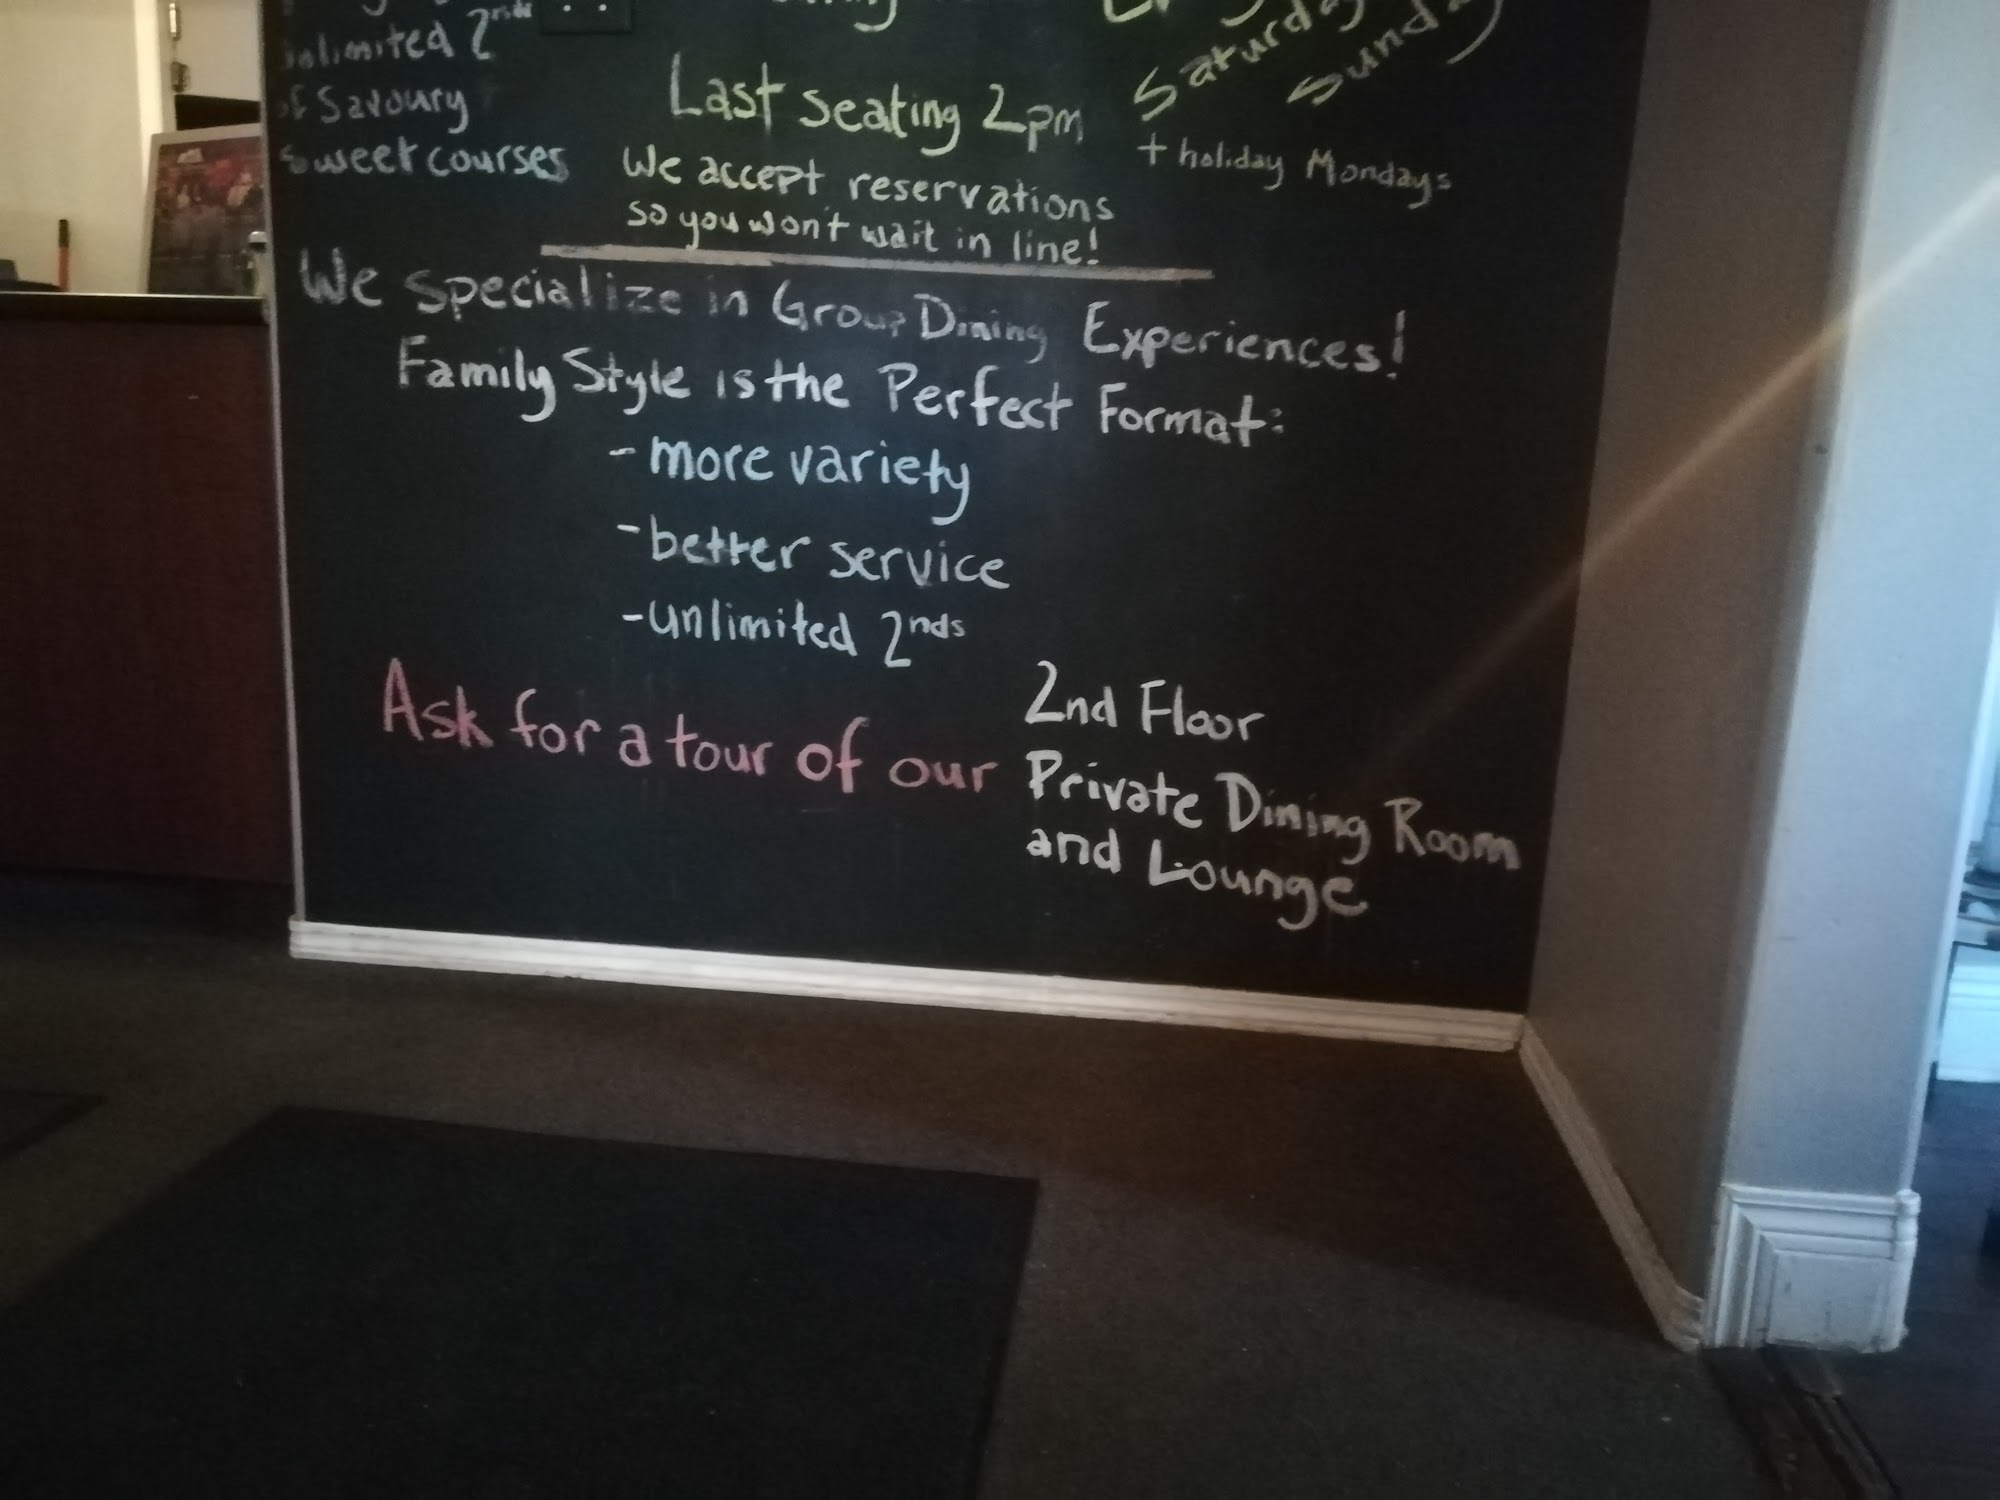 Unlimited 2nds
of Savoury
Sweet courses
Last seating 2pm
We accept reservations
so you won't wait in line!
Saturday
Sunday
+ holiday Mondays
We specialize in Group Dining Experiences!
Family Style is the Perfect Format:
- more variety
- better service
- unlimited 2nds
Ask for a tour of our
2nd Floor
Private Dining Room
and Lounge